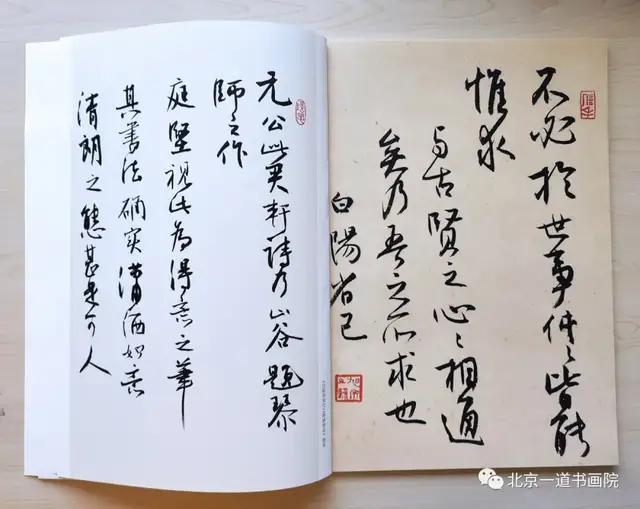 不必於世事件〻皆能
惟求
与古賢之心〻相通
矣乃吾之所求也
白陽省己
元公此君軒詩乃山谷題琴
師之作
庭堅視此為得意之筆
其書法确实瀟洒如意
清朗之態甚是可人
北京一道书画院